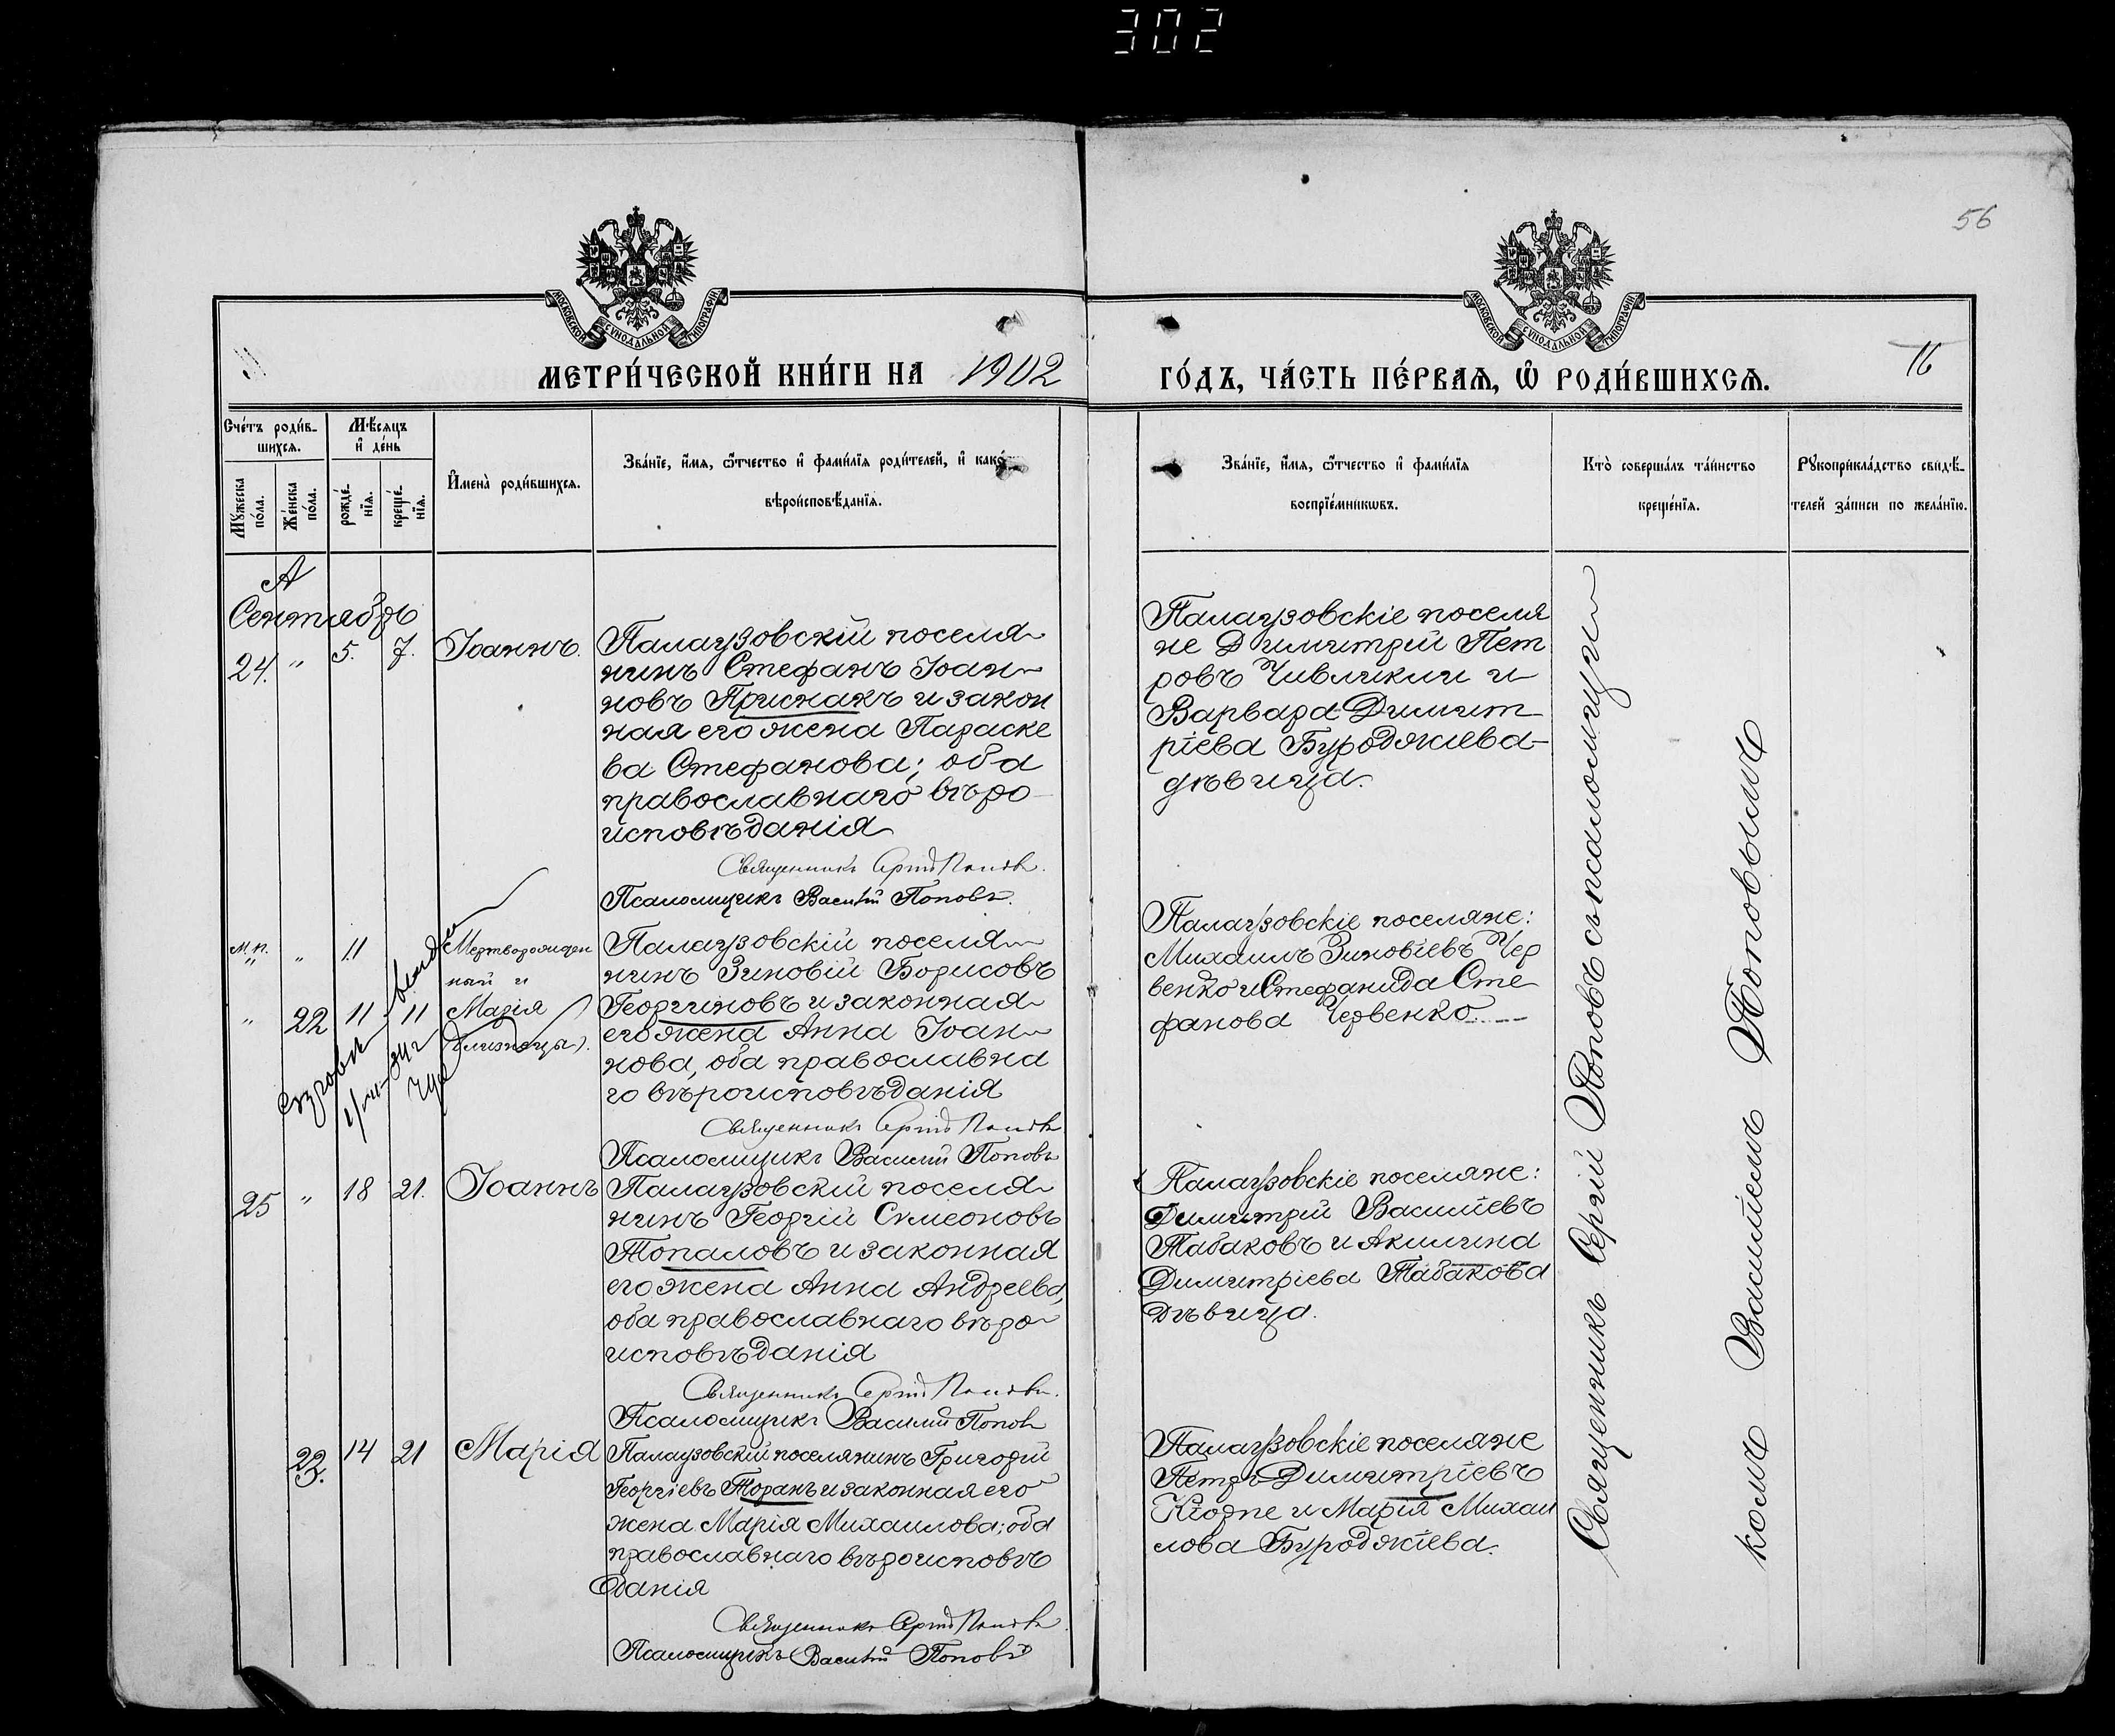 302
56
МОСКОВСКОЙ СУНОДАЛЬНОЙ ТИПОГРАФІИ
МОСКОВСКОЙ СУНОДАЛЬНОЙ ТИПОГРАФІИ
МЕТРИ́ЧЕСКОЙ КНИ́ГИ НА 1902
ГО́ДЪ, ЧА́СТЬ ПЕ́РВАѦ, Ѡ҆ РОДИ́ВШИХСѦ.
16
Сче́тъ роди́в-
шихсѧ.
Мѣ́сѧцъ
и҆ де́нь
Мꙋ́жеска
по́ла.
Же́нска
по́ла.
рожде́-
нїѧ.
креще́-
нїѧ.
И҆мена̀ роди́вшихсѧ.
Зва́нїе, и҆́мѧ, ѻ҆́тчество и҆ фамѝлїѧ роди́телей, и҆ како́-
вѣроисповѣ́данїѧ.
Зва́нїе, и҆́мѧ, ѻ҆́тчество и҆ фами́лїѧ
воспрїе́мникѡвъ.
Кто̀ соверша́лъ та́инство
креще́нїѧ.
Рꙋкоприкла́дство свидѣ́-
телей за́писи по жела́нїю.
Сентябрь
24. " 5. 7. Іоаннъ.
Палаузовскій поселя
нинъ Стефанъ Іоан
новъ Присжакъ и закон
ная его жена Параске
ва Стефанова; оба
православнаго въро
исповѣданія
Священникъ Сергій Поповъ.
Псаломщикъ Василій Поповъ.
Палаузовскіе поселя
не Димитрій Пет
ровъ Чивликли и
Варвара Димит
ріева Буроджіева-
дѣвица.
м.п. " 11 Мертворожден
ный и
" 22 11 11 Марія
(близнецы).
Палаузовскій поселя
нинъ Зиновій Борисовъ
Георгиновъ и законная
его жена Анна Іоан
нова, оба православна
го вѣроисповѣданія
Священникъ Сергій Поповъ
Псаломщикъ Василій Поповъ
Палаузовскіе поселяне:
Михаилъ Зиновіевъ Чер
венко и Стефанида Сте
фанова Червенко.
25 " 18 21. Іоаннъ
Палаузовскій поселя
нинъ Георгій Симеоновъ
Топаловъ и законная
его жена Анна Андреева,
оба православнаго вѣро
исповѣданія
Священникъ Сергій Поповъ.
Псаломщикъ Василій Поповъ
Палаузовскіе поселяне:
Димитрій Василіевъ
Табаковъ и Акилина
Димитріева Табакова
дѣвица.
23. 14 21 Марія
Палаузовскій поселянинъ Григорій
Георгіевъ Торанъ и законная его
жена Марія Михаилова; оба
православнаго вѣроисповѣ
данія
Священникъ Сергій Поповъ.
Псаломщикъ Василій Поповъ
Палаузовскіе поселяне
Петръ Димитріевъ
Кіорпе и Марія Михаи
лова Буроджіева.
Священникъ Сергій Поповъ съ псаломщи
комъ Василіемъ Поповымъ